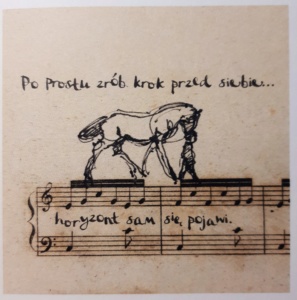 Po Prostu zrób krok przed siebie...
horyzont sam się pojawi.